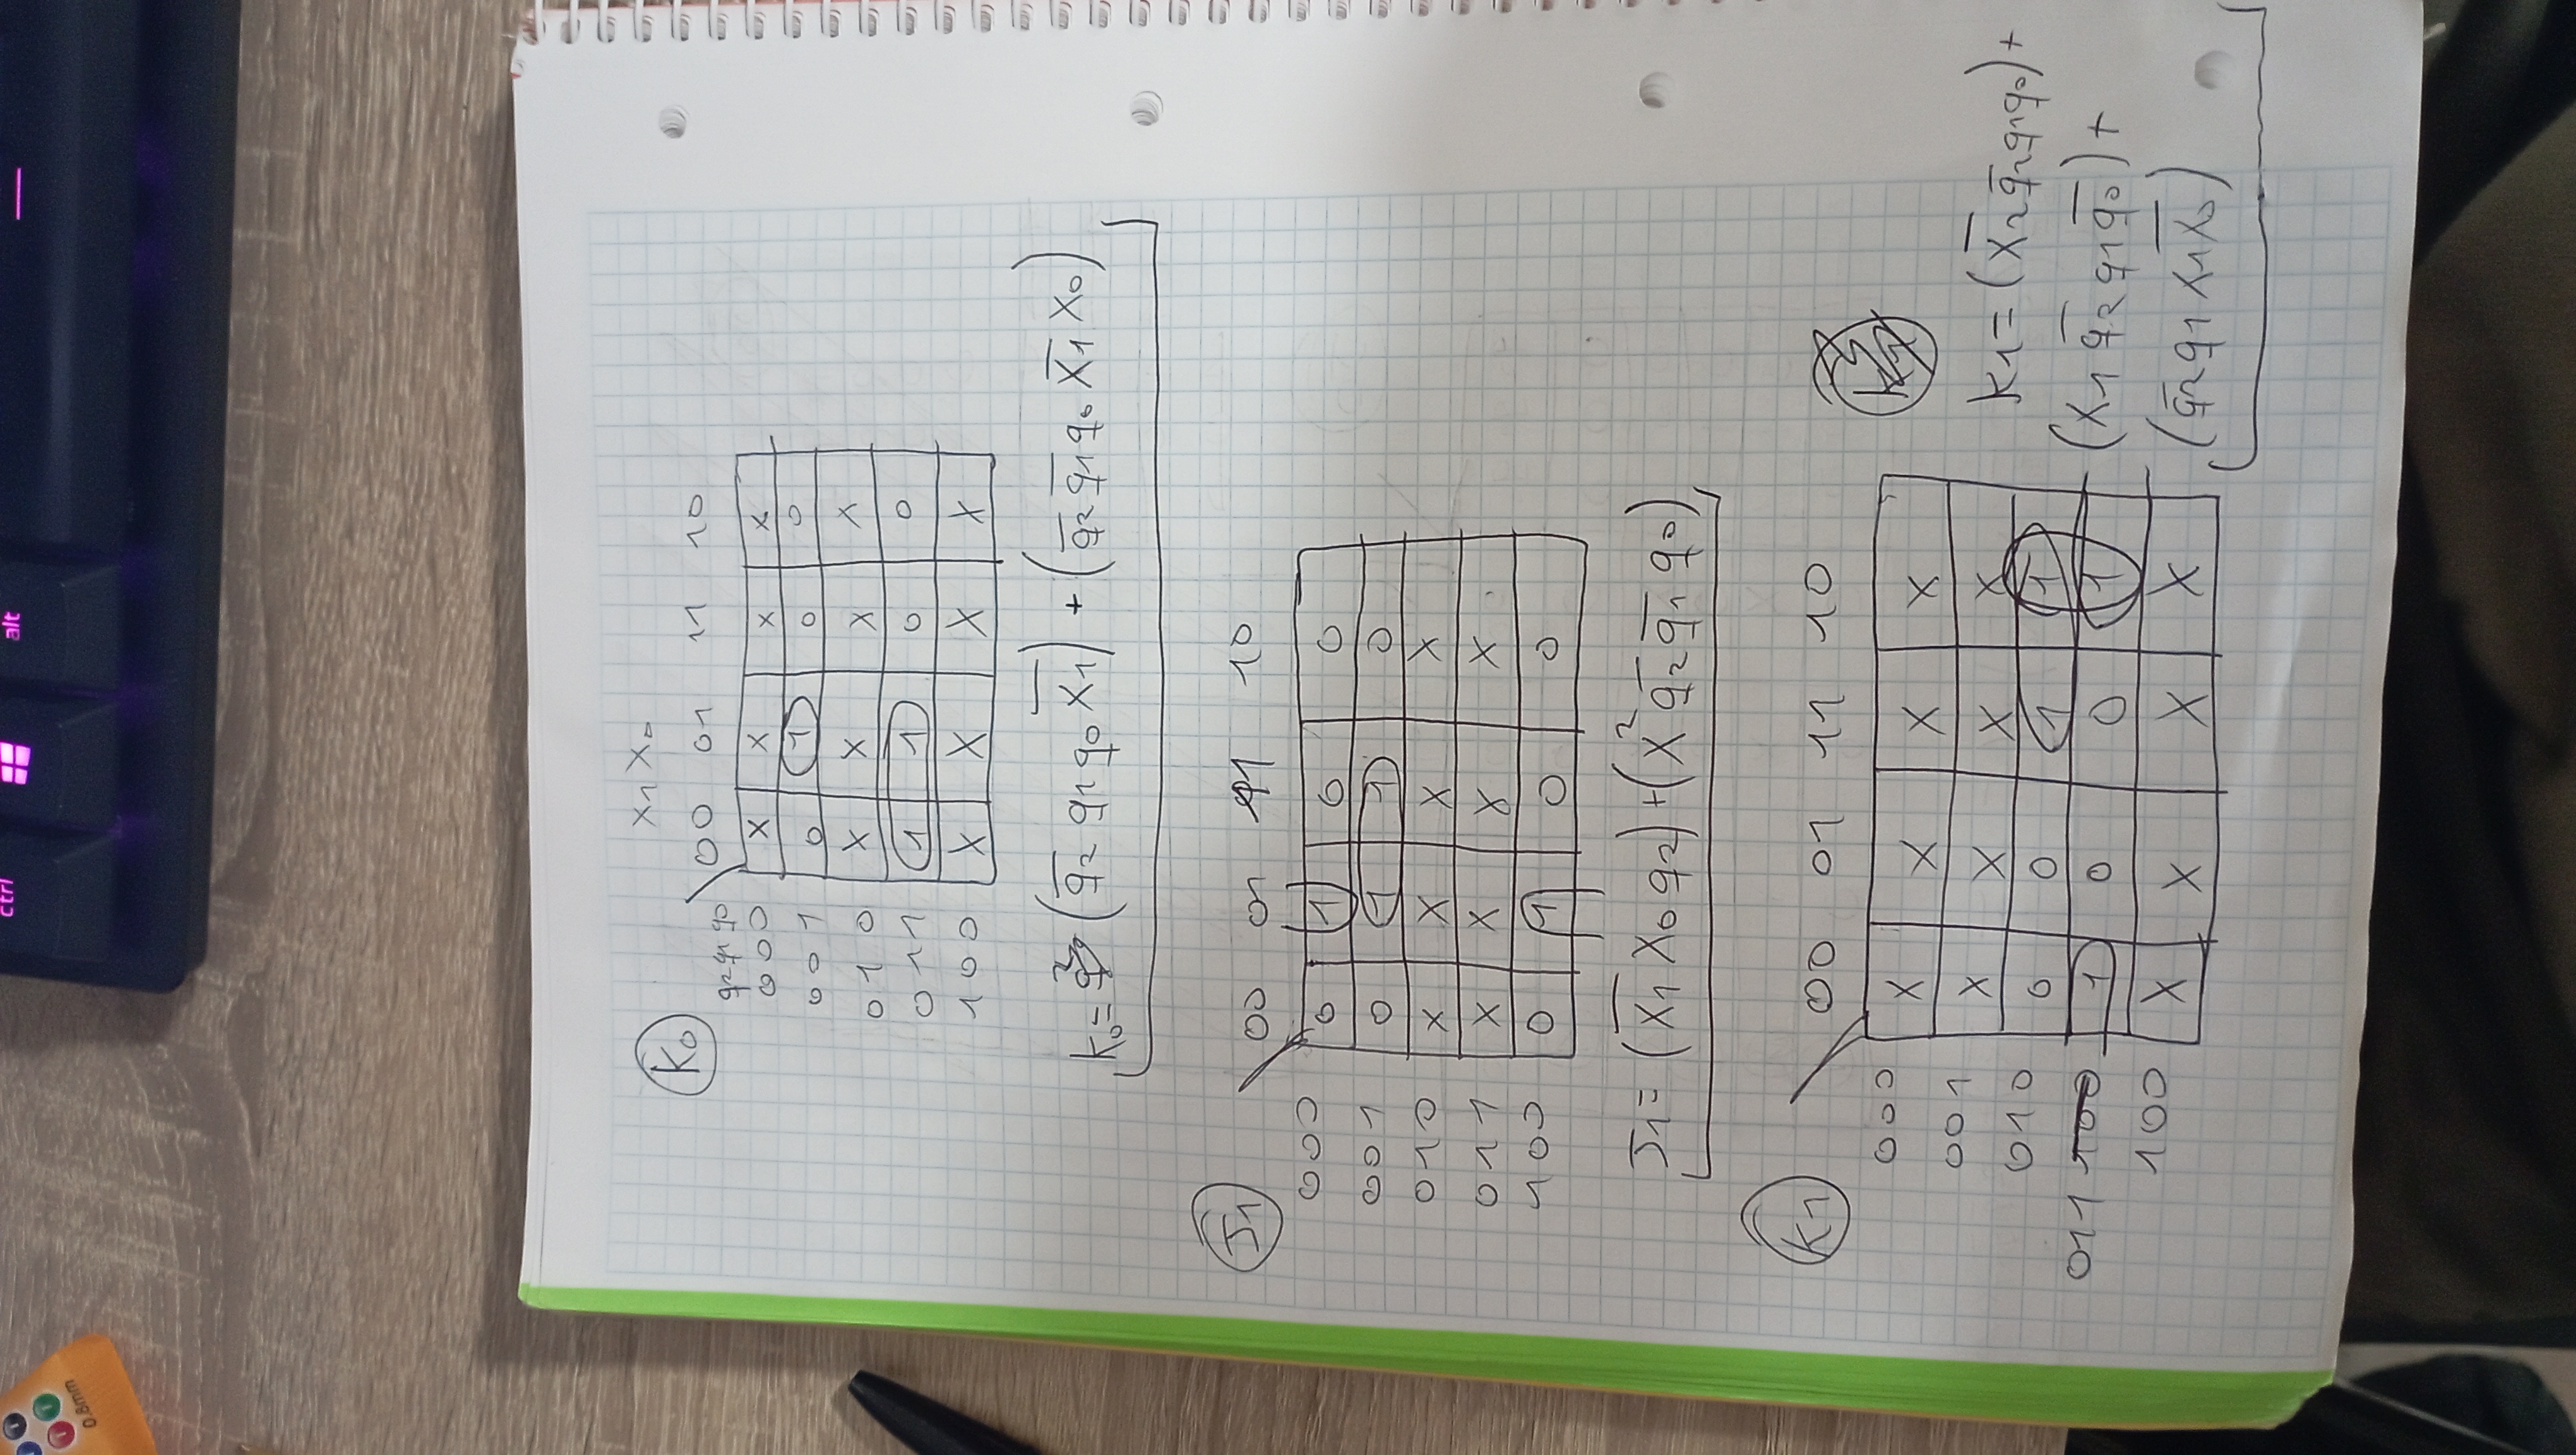 ctrl alt
0.8mm
K₀
X₁ X₀
q₂ q₁ q₀ 00 01 11 10
000 X X X X
001 0 1 0 0
010 X X X X
011 1 1 0 0
100 X X X X
K₀ = (q̅₂ q₁ q₀ X̅₁) + (q̅₂ q̅₁ q₀ X̅₁ X₀)
J₁ 00 01 11 10
000 0 1 0 0
001 0 1 1 0
010 X X X X
011 X X X X
100 0 1 0 0
J₁ = (X̅₁ X₀ q₂) + (X² q̅₂ q̅₁ q₀)
K₁ 00 01 11 10
000 X X X X
001 X X X X
010 0 0 1 1
011 100 1 0 0 1
100 X X X X
K₁ = (X̅₂ q̅₂ q₁ q₀) +
(X₁ q̅₂ q₁ q̅₀) +
(q̅₂ q₁ X₁ X̅₀)